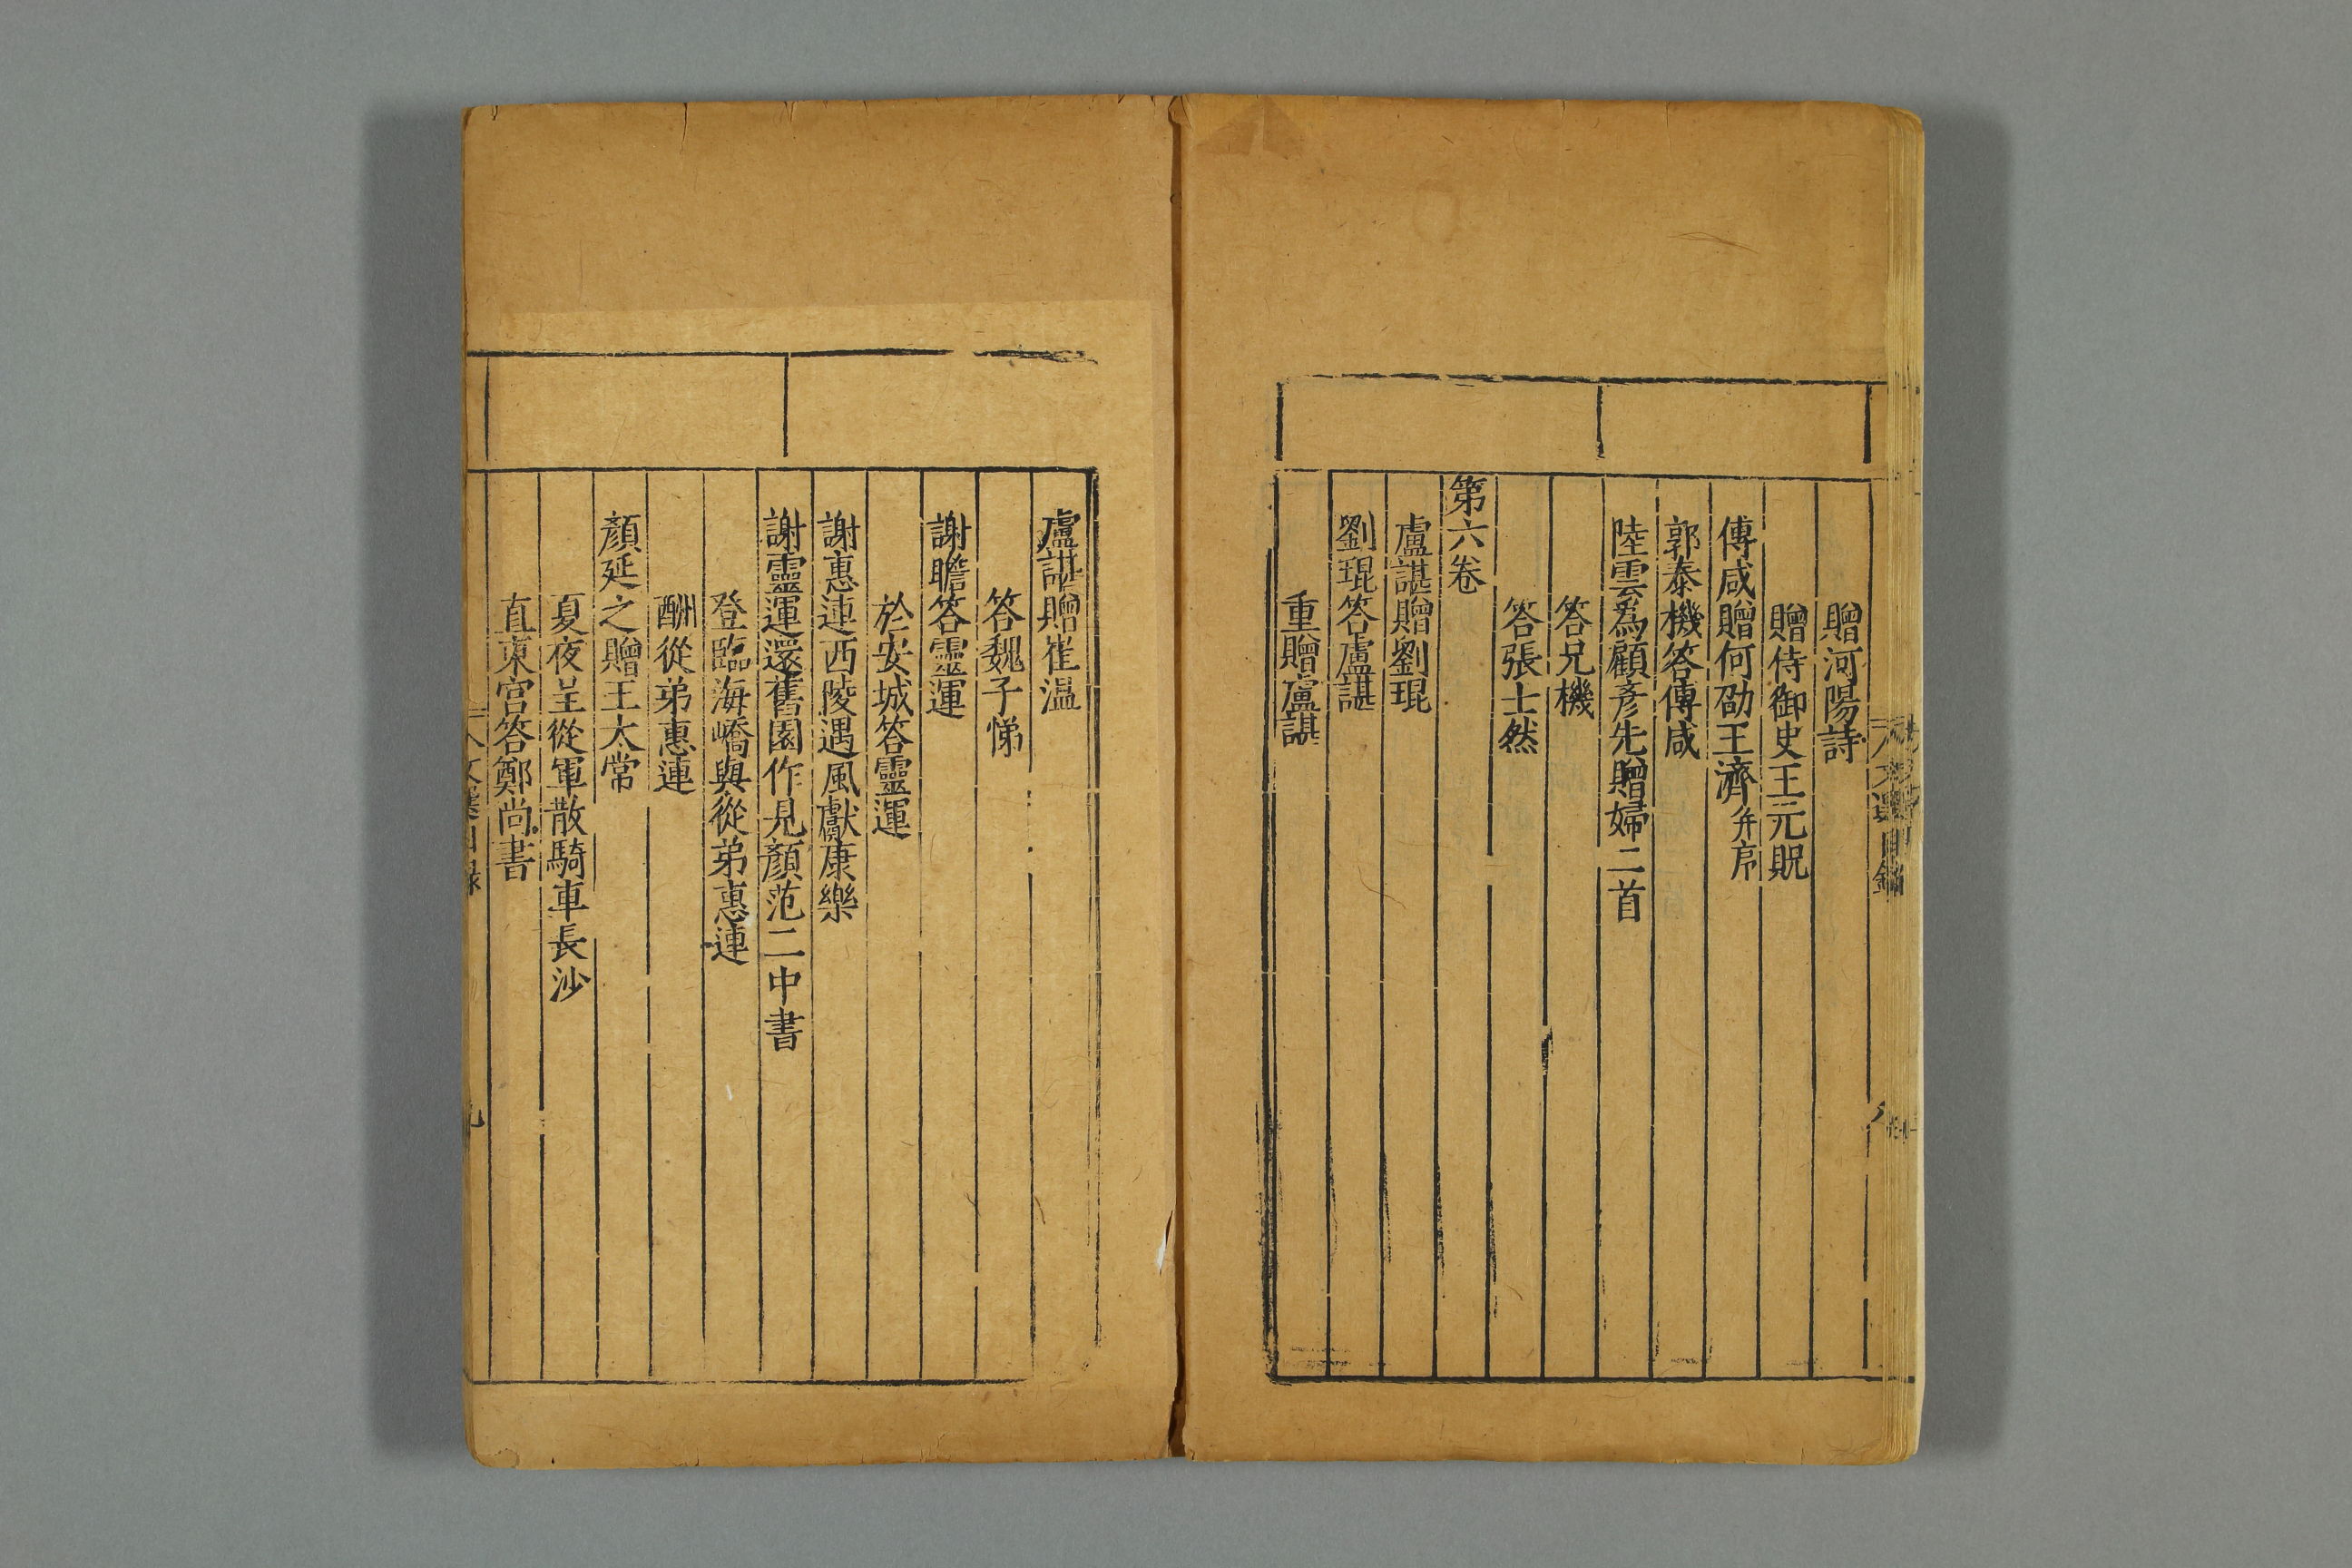 贈河陽詩
贈侍御史王元貺
傅咸贈何劭王濟并序
郭泰機答傅咸
陸雲爲顧彥先贈婦二首
答兄機
答張士然
第六卷
盧諶贈劉琨
劉琨答盧諶
重贈盧諶
盧諶贈崔温
答魏子悌
謝瞻答靈運
於安城答靈運
謝惠連西陵遇風獻康樂
謝靈運還舊園作見顏范二中書
登臨海嶠與從弟惠連
酬從弟惠連
顏延之贈王太常
夏夜呈從軍散騎車長沙
直東宮答鄭尚書